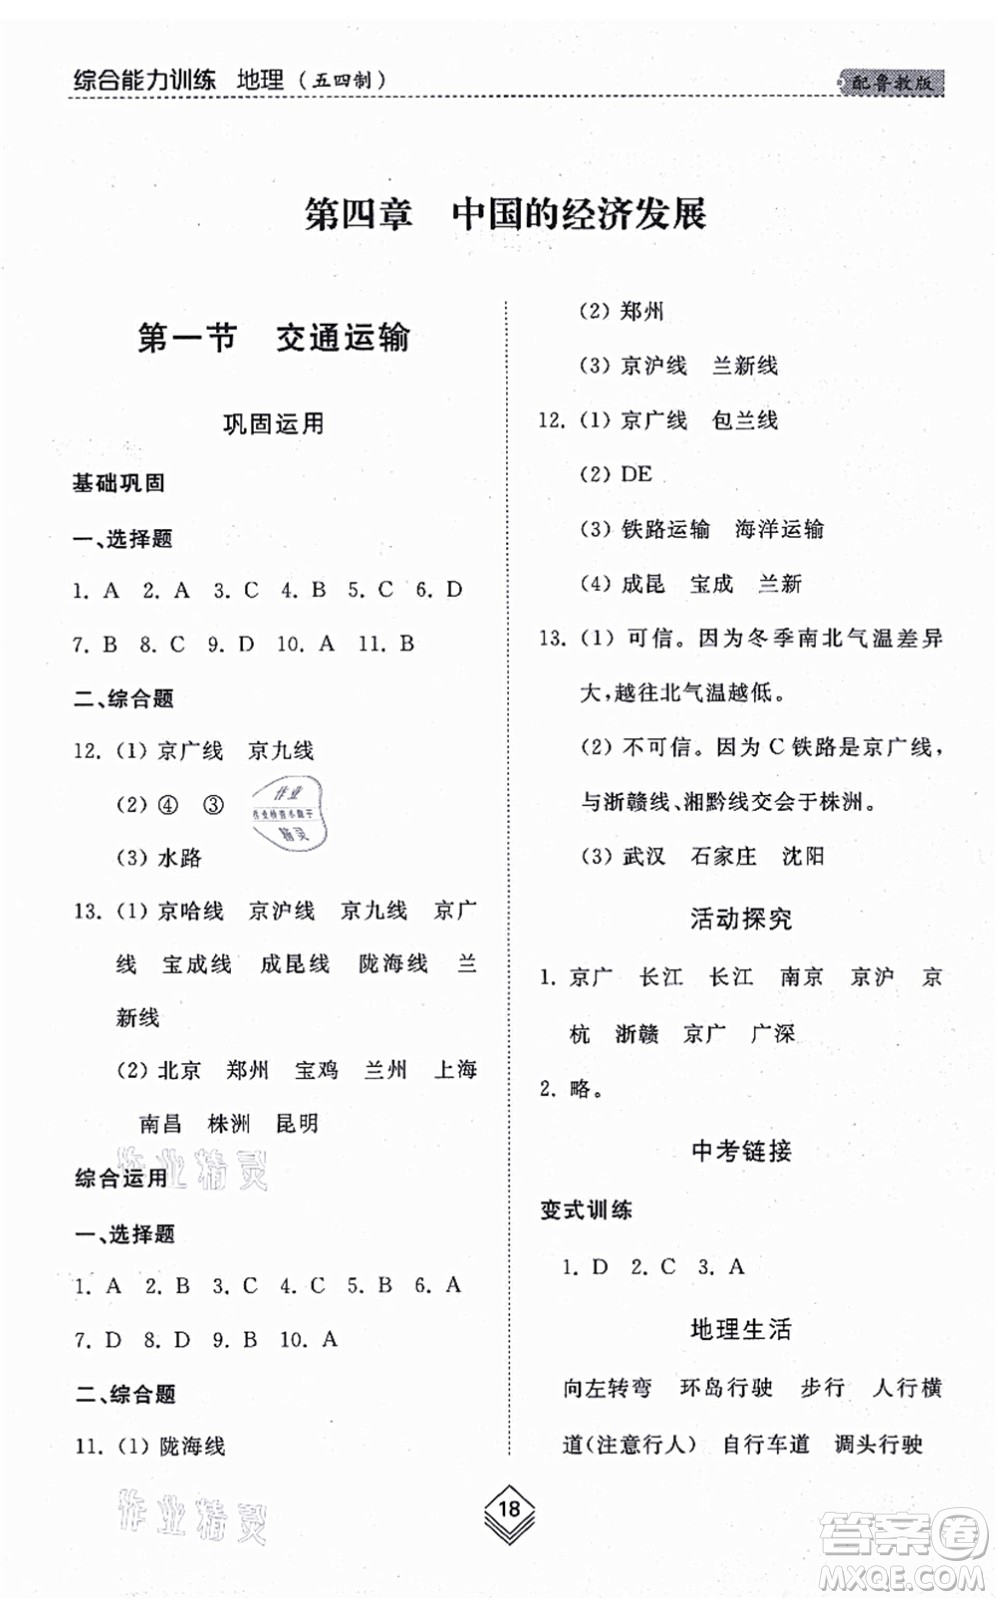 综合能力训练 地理（五四制）
配鲁教版
第四章 中国的经济发展
第一节 交通运输
巩固运用
基础巩固
一、选择题
1. A 2. A 3. C 4. B 5. C 6. D
7. B 8. C 9. D 10. A 11. B
二、综合题
12.（1）京广线 京九线
（2）④ ③
（3）水路
13.（1）京哈线 京沪线 京九线 京广
线 宝成线 成昆线 陇海线 兰
新线
（2）北京 郑州 宝鸡 兰州 上海
南昌 株洲 昆明
综合运用
一、选择题
1. A 2. B 3. C 4. C 5. B 6. A
7. D 8. D 9. B 10. A
二、综合题
11.（1）陇海线
（2）郑州
（3）京沪线 兰新线
12.（1）京广线 包兰线
（2）DE
（3）铁路运输 海洋运输
（4）成昆 宝成 兰新
13.（1）可信。因为冬季南北气温差异
大，越往北气温越低。
（2）不可信。因为 C 铁路是京广线，
与浙赣线、湘黔线交会于株洲。
（3）武汉 石家庄 沈阳
活动探究
1. 京广 长江 长江 南京 京沪 京
杭 浙赣 京广 广深
2. 略。
中考链接
变式训练
1. D 2. C 3. A
地理生活
向左转弯 环岛行驶 步行 人行横
道（注意行人） 自行车道 调头行驶
18
作业
精灵
作业精灵
作业精灵
答案卷
MXQE.COM